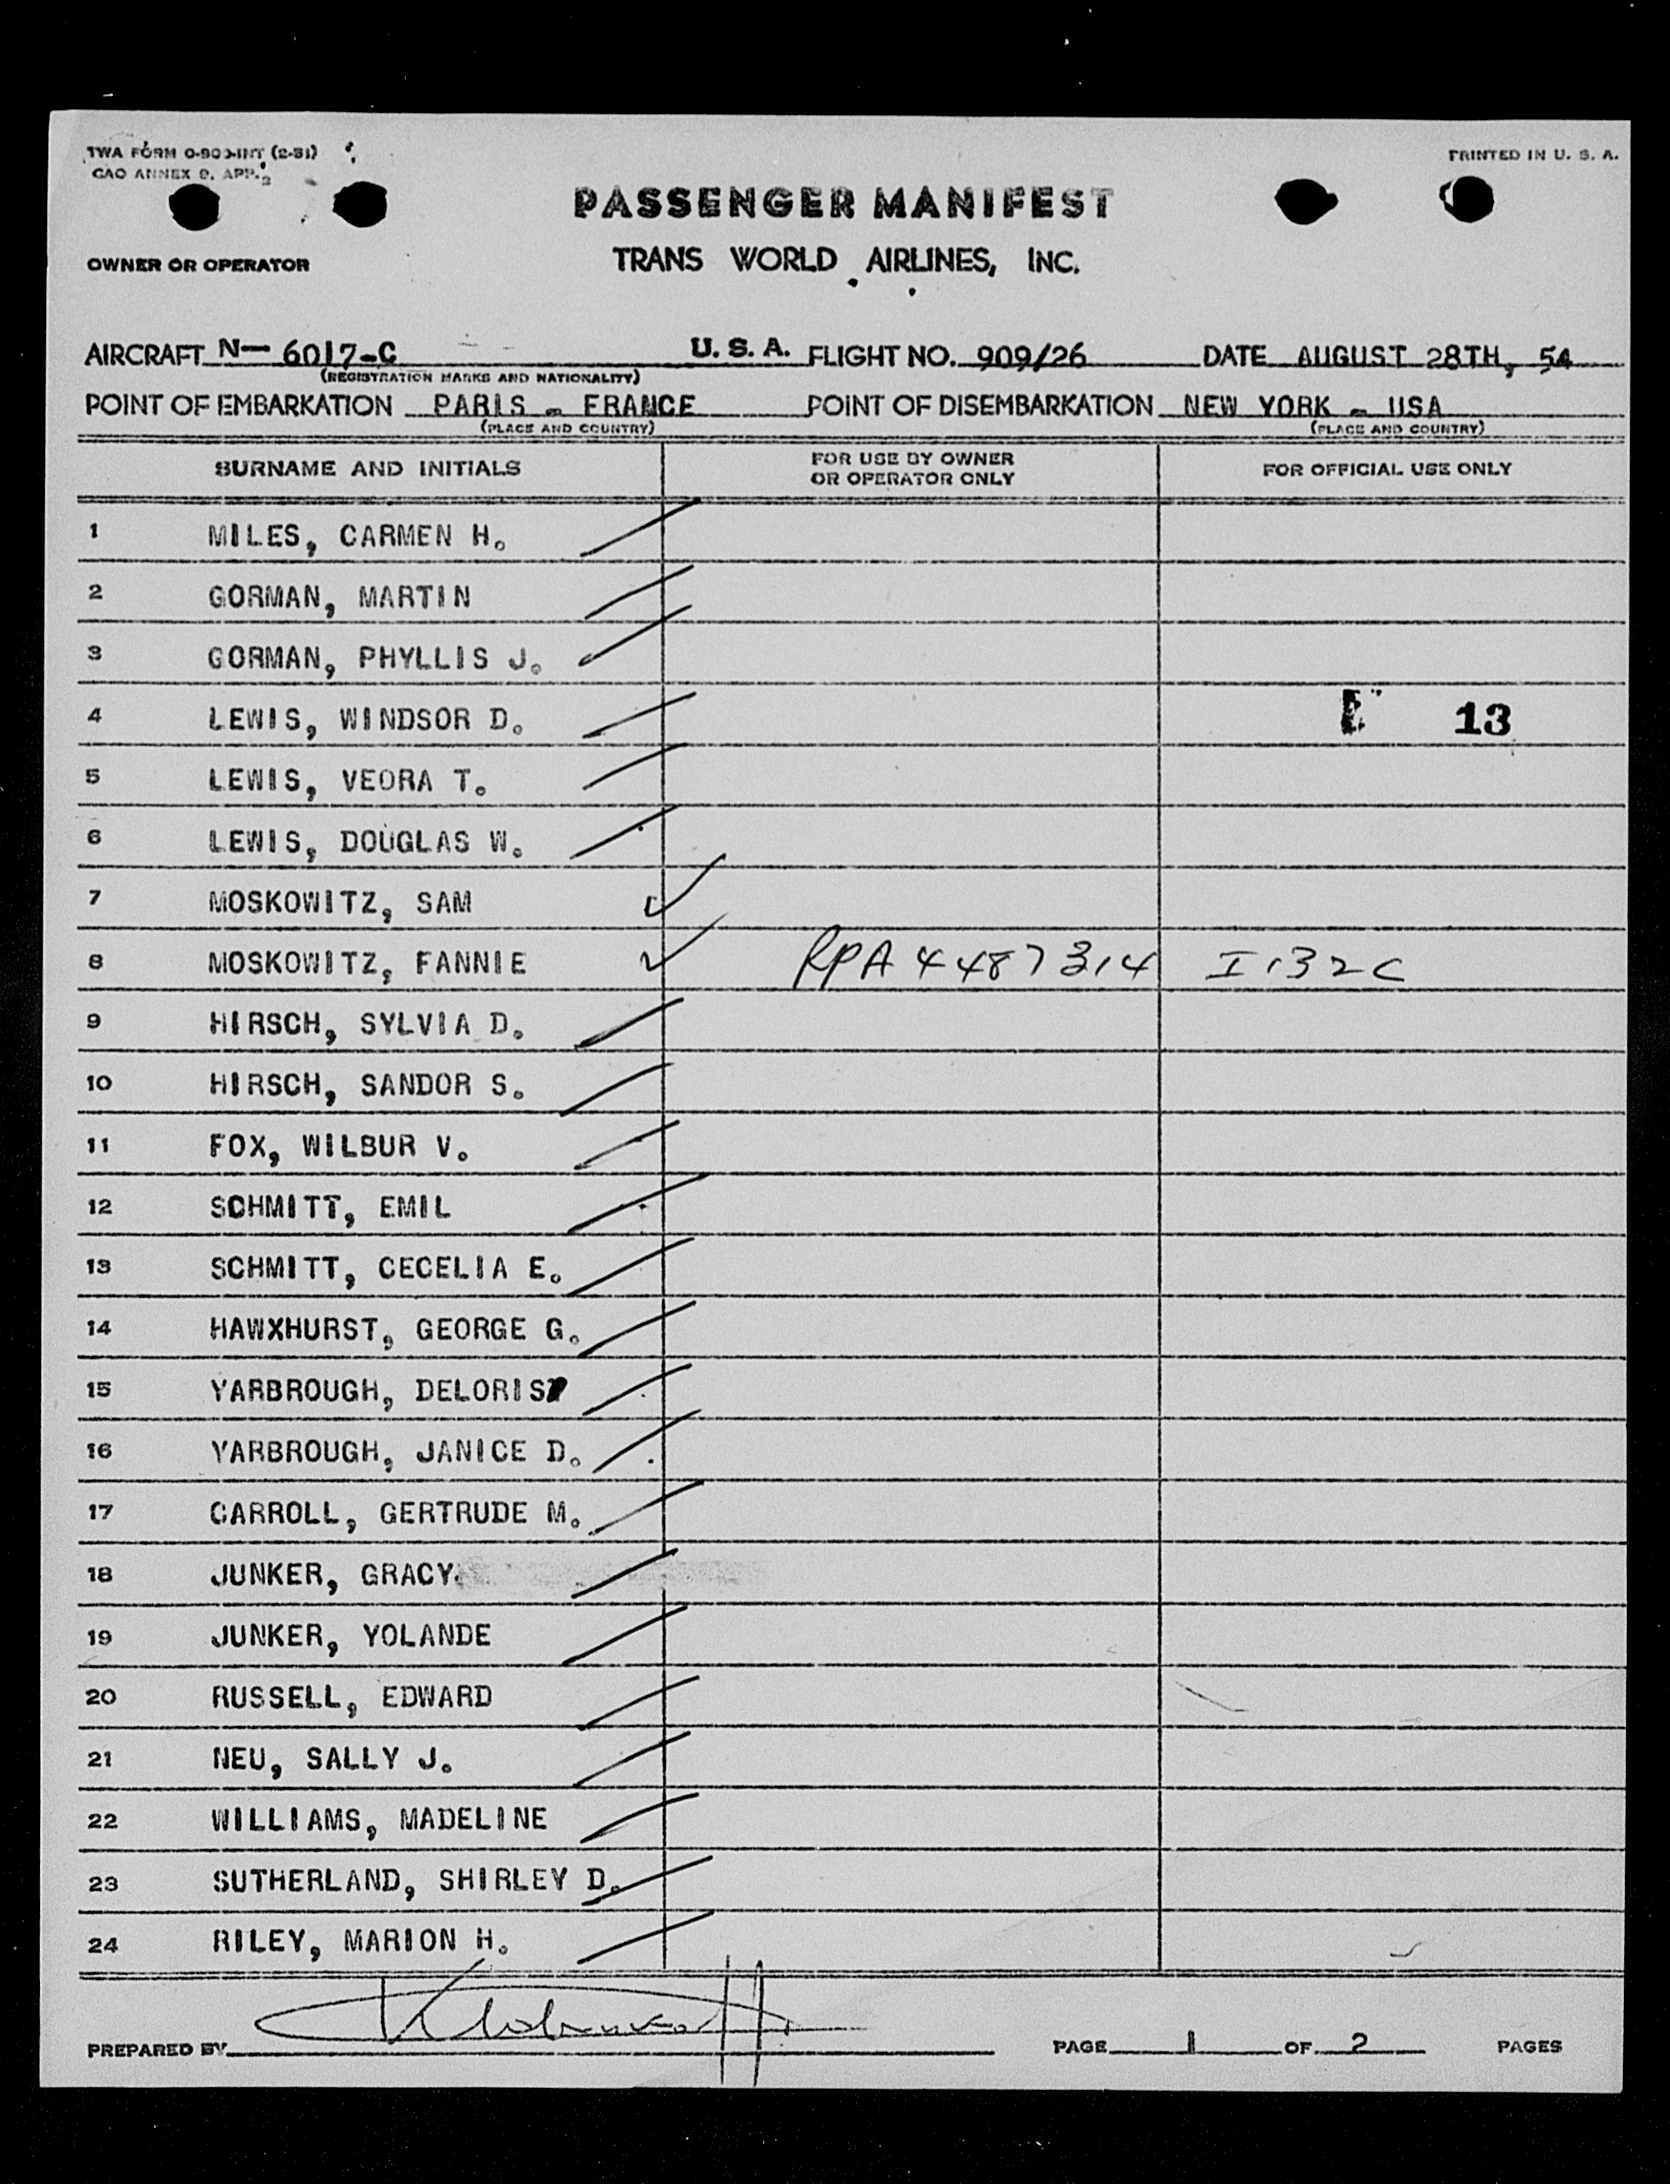 TWA FORM O-900-INT (2-51)
CAO ANNEX 9, APP. 2
PRINTED IN U. S. A.
PASSENGER MANIFEST
OWNER OR OPERATOR TRANS WORLD AIRLINES, INC.
AIRCRAFT N— 6017-C U. S. A. FLIGHT NO. 909/26 DATE AUGUST 28TH, 54
(REGISTRATION MARKS AND NATIONALITY)
POINT OF EMBARKATION PARIS - FRANCE POINT OF DISEMBARKATION NEW YORK - USA
(PLACE AND COUNTRY) (PLACE AND COUNTRY)
SURNAME AND INITIALS FOR USE BY OWNER OR OPERATOR ONLY FOR OFFICIAL USE ONLY
1 MILES, CARMEN H.
2 GORMAN, MARTIN
3 GORMAN, PHYLLIS J.
4 LEWIS, WINDSOR D. E 13
5 LEWIS, VEORA T.
6 LEWIS, DOUGLAS W.
7 MOSKOWITZ, SAM
8 MOSKOWITZ, FANNIE RPA 4487314 I-132C
9 HIRSCH, SYLVIA D.
10 HIRSCH, SANDOR S.
11 FOX, WILBUR V.
12 SCHMITT, EMIL
13 SCHMITT, CECELIA E.
14 HAWXHURST, GEORGE G.
15 YARBROUGH, DELORIS
16 YARBROUGH, JANICE D.
17 CARROLL, GERTRUDE M.
18 JUNKER, GRACY
19 JUNKER, YOLANDE
20 RUSSELL, EDWARD
21 NEU, SALLY J.
22 WILLIAMS, MADELINE
23 SUTHERLAND, SHIRLEY D.
24 RILEY, MARION H.
PREPARED BY PAGE 1 OF 2 PAGES